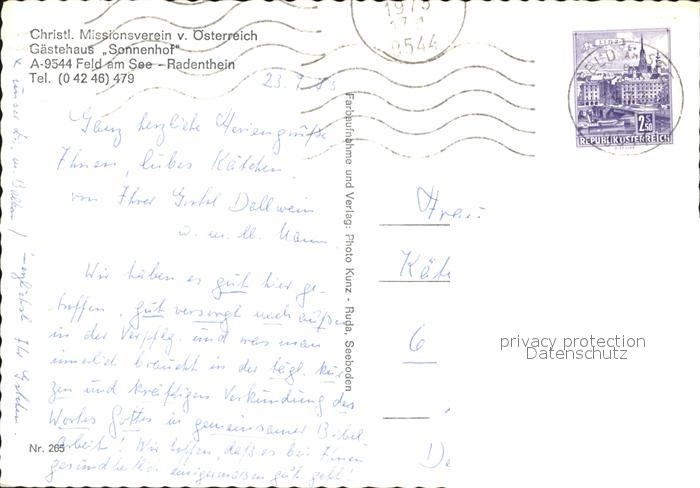 Christl. Missionsverein v. Österreich
Gästehaus „Sonnenhof"
A-9544 Feld am See - Radenthein
Tel. (0 42 46) 479
1973
9544
LINZ
2.50
S
REPUBLIK ÖSTERREICH
Ganz herzliche Feriengrüße
Ihnen, liebes Kätchen
von Ihrer Gretel Dollwein
u. m. lb. Mann.
Wir haben es gut hier ge-
troffen, gut versorgt nach außen
in der Verpflg. und was man
innerlich braucht in der tägl. kur-
zen und kräftigen Verkündung des
Wortes Gottes in gemeinsamer Bibel-
arbeit! Wir hoffen, daß es bei Ihnen
gesundheitlich einigermaßen gut geht!
Farbaufnahme und Verlag: Photo Kunz - Ruda, Seeboden
Frau
Kät
6
privacy protection
Datenschutz
Nr. 265